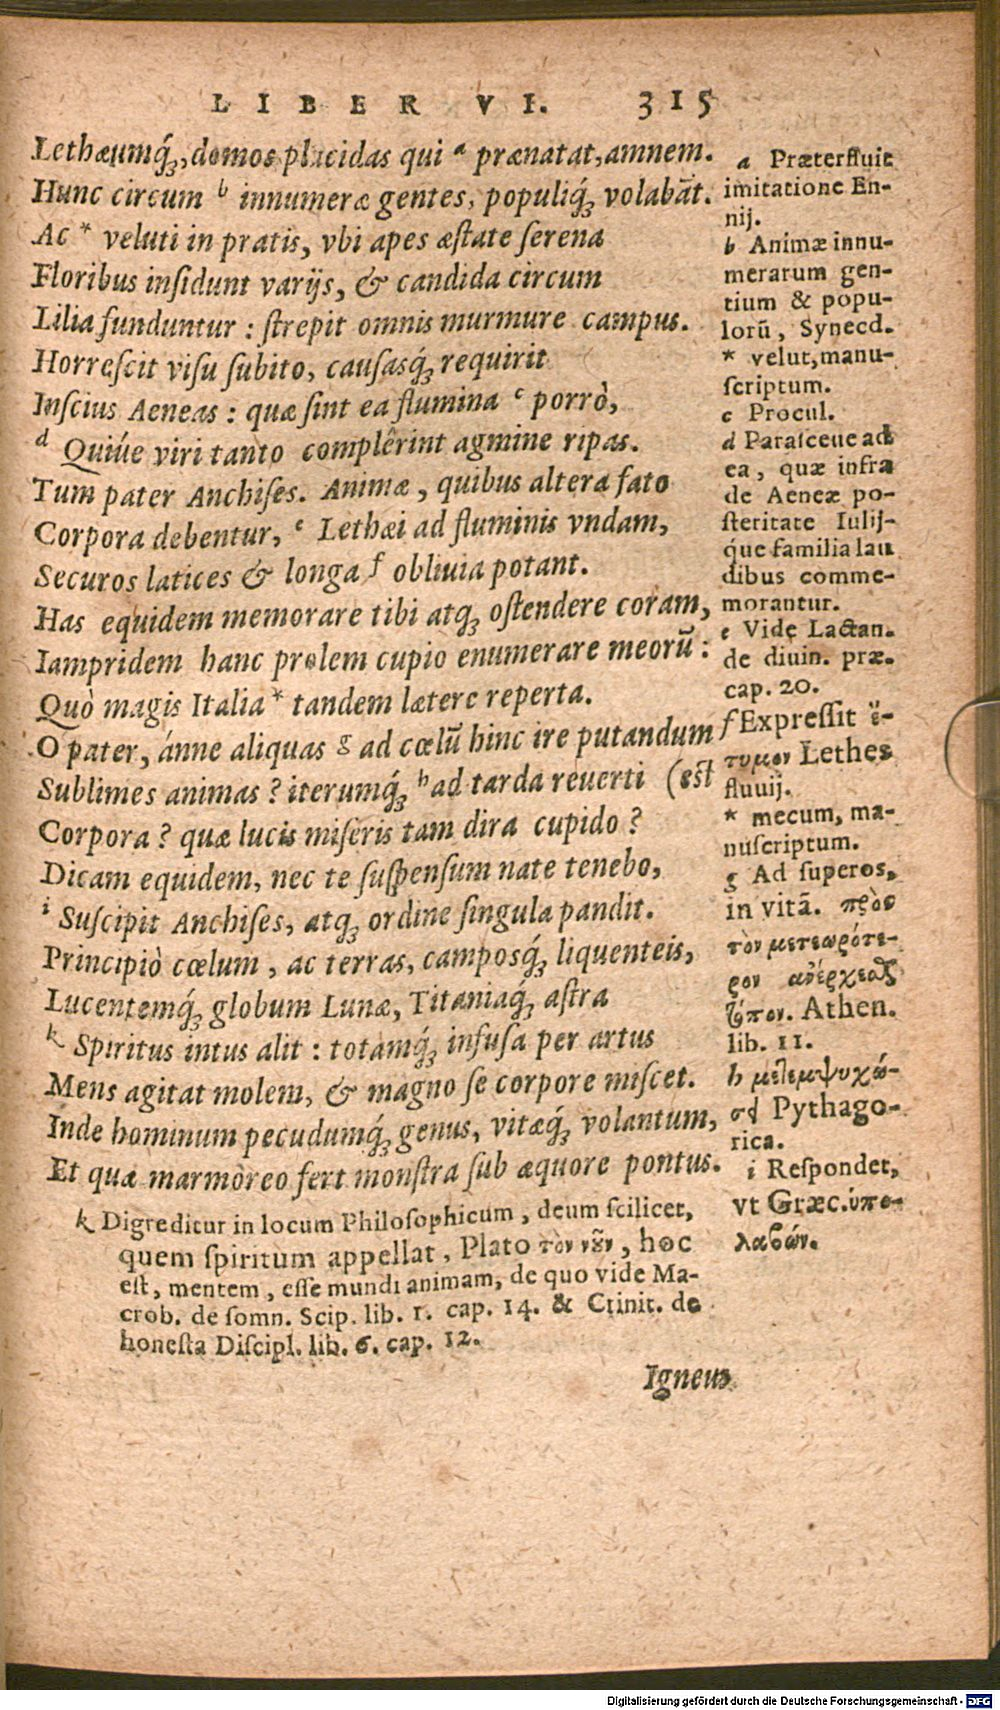 LIBER VI. 315
Lethæumq́ꝫ, domos placidas qui a prænatat, amnem.
Hunc circum b innumeræ gentes, populiq́ꝫ volabãt.
Ac * veluti in pratis, vbi apes æſtate ſerena
Floribus inſidunt varijs, & candida circum
Lilia funduntur : ſtrepit omnis murmure campus.
Horreſcit viſu ſubito, cauſasq́ꝫ requirit
Inſcius Aeneas : quæ ſint ea flumina c porrò,
d Quiúe viri tanto complêrint agmine ripas.
Tum pater Anchiſes. Animæ, quibus altera fato
Corpora debentur, e Lethæi ad fluminis vndam,
Securos latices & longa f obliuia potant.
Has equidem memorare tibi atqꝫ oſtendere coram,
Iampridem hanc prolem cupio enumerare meorũ :
Quò magis Italia * tandem lætere reperta.
O pater, ánne aliquas g ad cœlũ hinc ire putandum
Sublimes animas ? iterumq́ꝫ h ad tarda reuerti (eſt
Corpora ? quæ lucis miſeris tam dira cupido ?
Dicam equidem, nec te ſuſpenſum nate tenebo,
i Suſcipit Anchiſes, atqꝫ ordine ſingula pandit.
Principiò cœlum, ac terras, camposq́ꝫ liquenteis,
Lucentemq́ꝫ globum Lunæ, Titaniaq́ꝫ aſtra
k Spiritus intus alit : totamq́ꝫ infuſa per artus
Mens agitat molem, & magno ſe corpore miſcet.
Inde hominum pecudumq́ꝫ genus, vitæq́ꝫ volantum,
Et quæ marmoreo fert monſtra ſub æquore pontus.
a Præterfluit
imitatione En-
nij.
b Animæ innu-
merarum gen-
tium & popu-
lorũ, Synecd.
* velut, manu-
ſcriptum.
c Procul.
d Paraſceue ad
ea, quæ infra
de Aeneæ po-
ſteritate Iulij-
q́ue familia lau
dibus comme-
morantur.
e Vide Lactan.
de diuin. præ.
cap. 20.
f Expreſſit ἔ-
τυμον Lethes
fluuij.
* mecum, ma-
nuſcriptum.
g Ad ſuperos,
in vitã. πρὸς
τὸν μετεωρότε-
ρον ἀνέρχεσθαι
τόπον. Athen.
lib. 11.
h μετεμψυχώ-
σει Pythago-
rica.
i Reſpondet,
vt Græc. ὑπο-
λαβών.
k Digreditur in locum Philoſophicum, deum ſcilicet,
quem ſpiritum appellat, Plato τὸν νοῦν, hoc
eſt, mentem, eſſe mundi animam, de quo vide Ma-
crob. de ſomn. Scip. lib. 1. cap. 14. & Crinit. de
honeſta Diſcipl. lib. 6. cap. 12.
Igneus
Digitalisierung gefördert durch die Deutsche Forschungsgemeinschaft - DFG